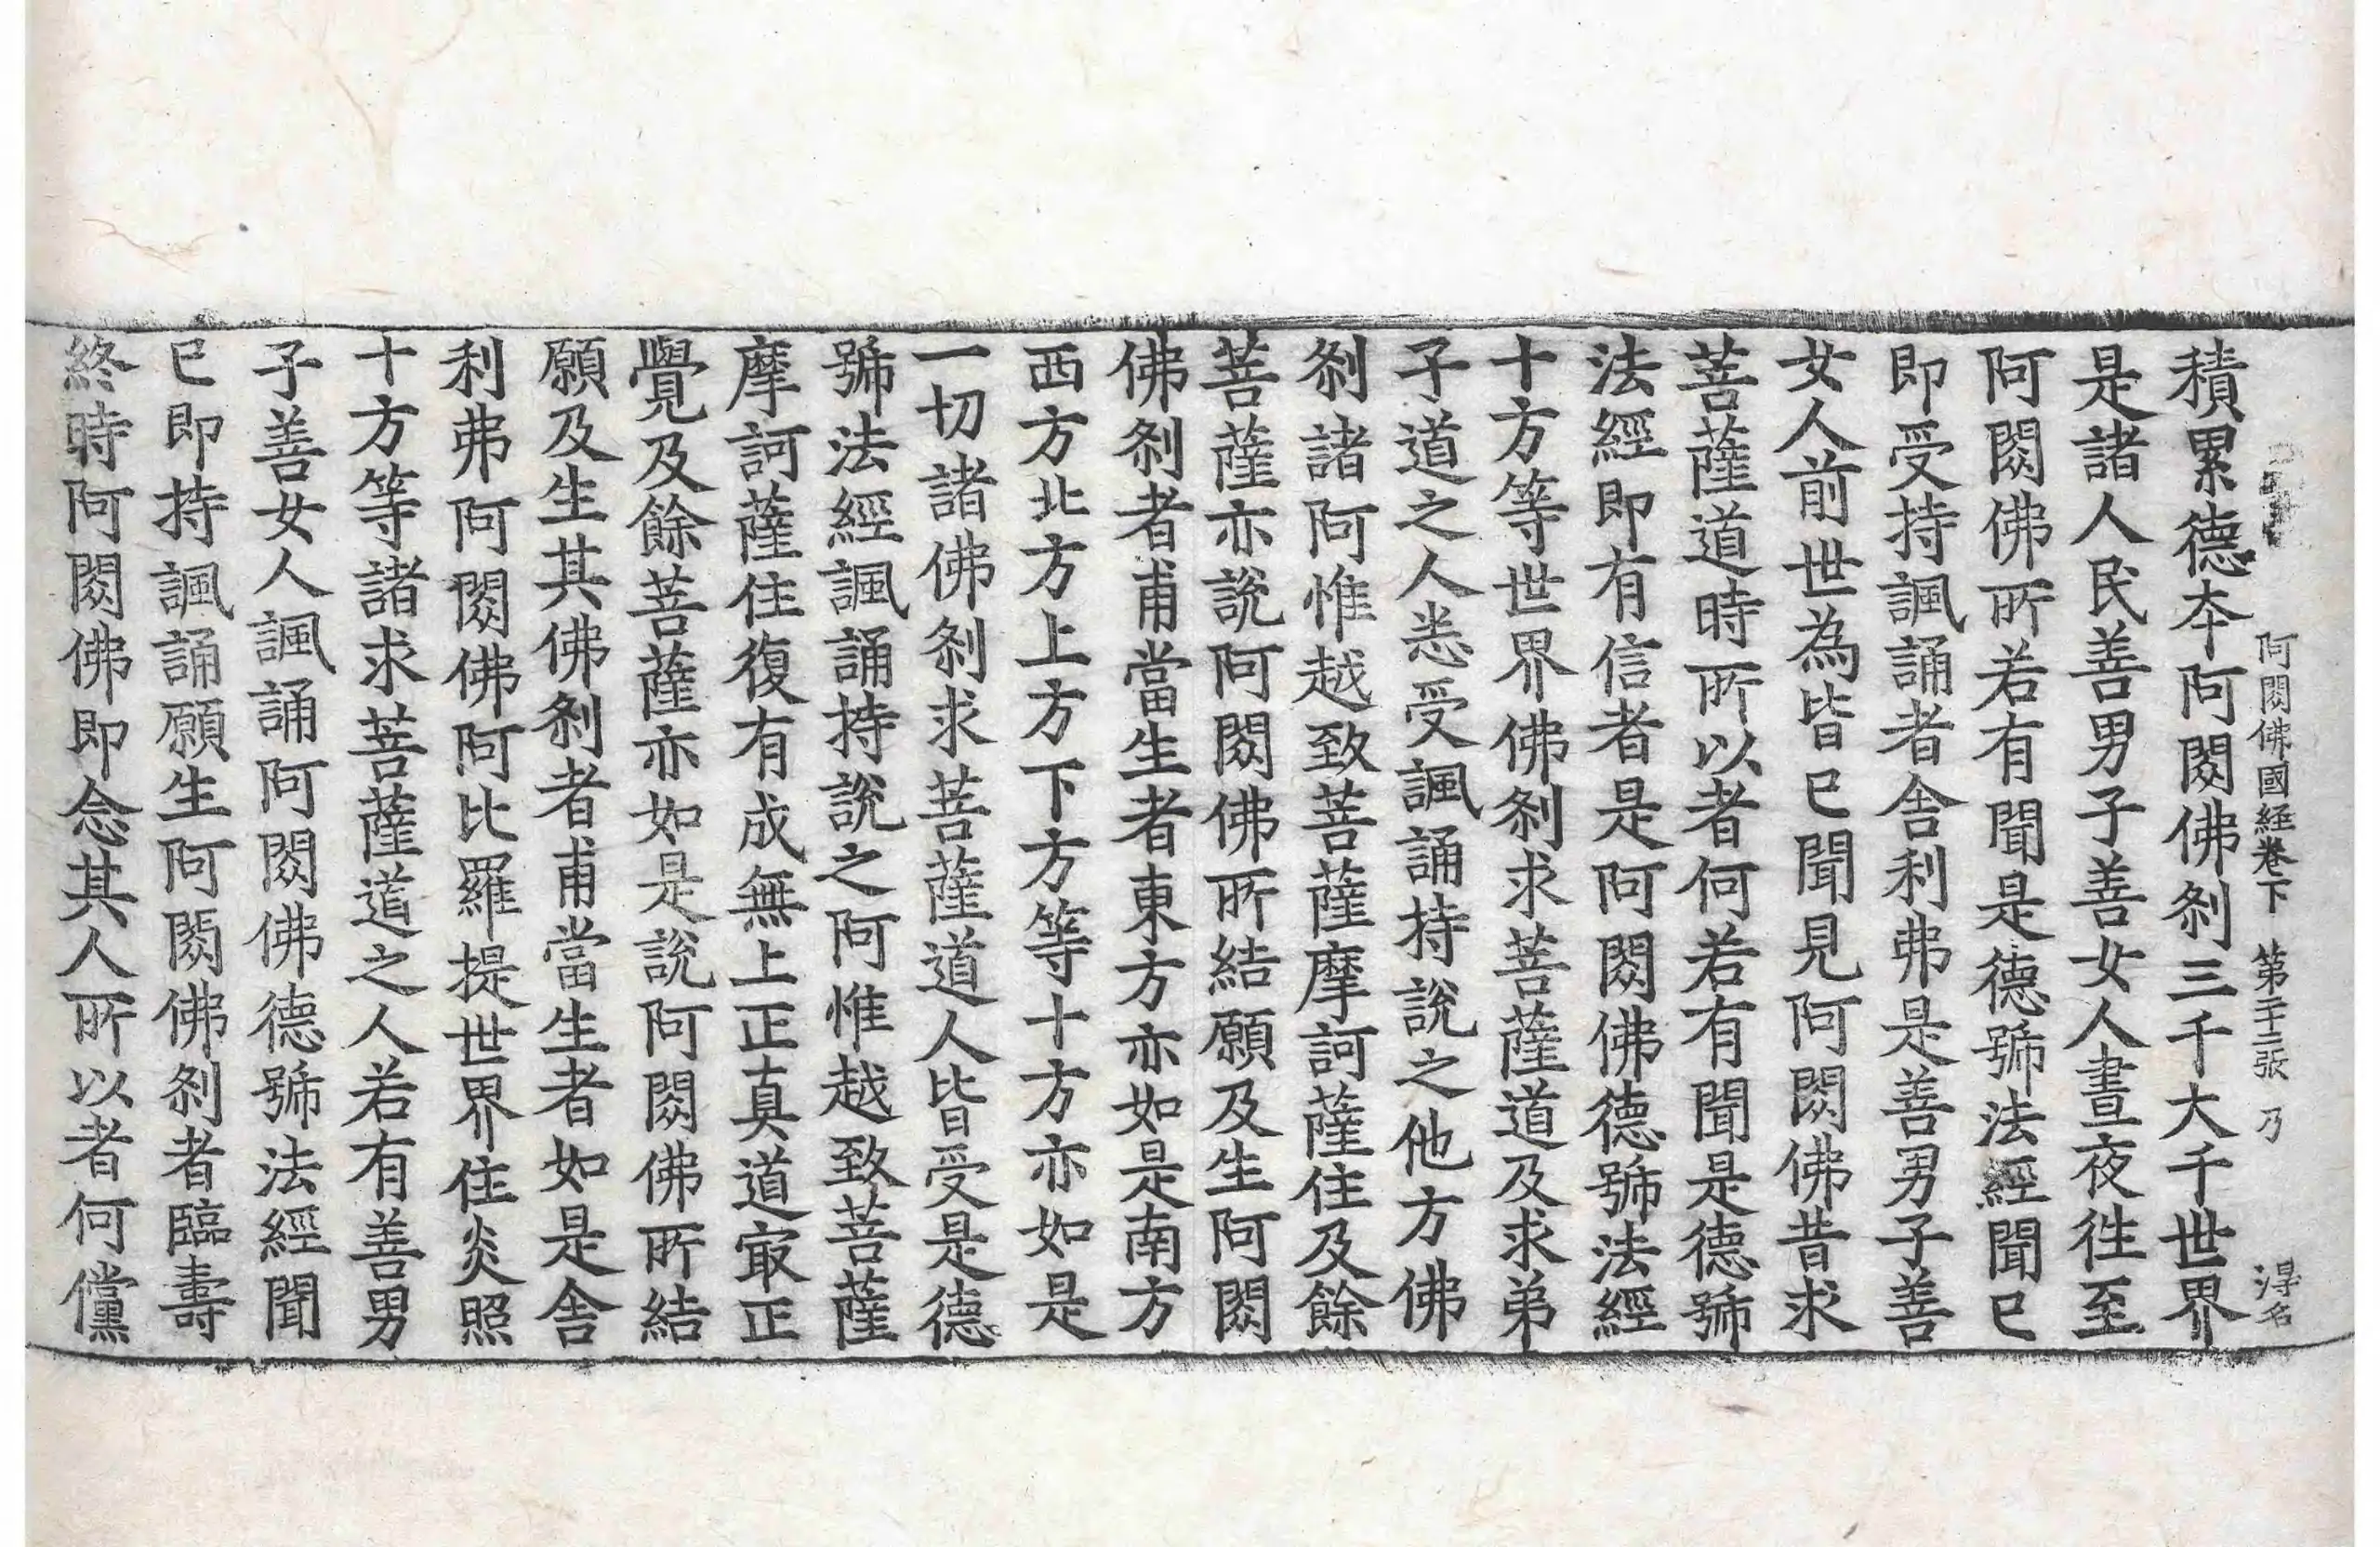 阿閦佛國経卷下　第二十三張　乃　淂名
積累德夲阿閦佛刹三千大千世界
是諸人民善男子善女人晝夜徃至
阿閦佛所若有聞是德號法經聞已
即受持諷誦者舍利弗是善男子善
女人前世為皆已聞見阿閦佛昔求
菩薩道時所以者何若有聞是德號
法經即有信者是阿閦佛德號法經
十方等世界佛刹求菩薩道及求弟
子道之人悉受諷誦持說之他方佛
刹諸阿惟越致菩薩摩訶薩住及餘
菩薩亦說阿閦佛所結願及生阿閦
佛刹者甫當生者東方亦如是南方
西方北方上方下方等十方亦如是
一切諸佛刹求菩薩道人皆受是德
號法經諷誦持說之阿惟越致菩薩
摩訶薩住復有成無上正真道㝡正
覺及餘菩薩亦如是說阿閦佛所結
願及生其佛刹者甫當生者如是舍
利弗阿閦佛阿比羅提世界住炎照
十方等諸求菩薩道之人若有善男
子善女人諷誦阿閦佛德號法經聞
已即持諷誦願生阿閦佛刹者臨壽
終時阿閦佛即念其人所以者何儻